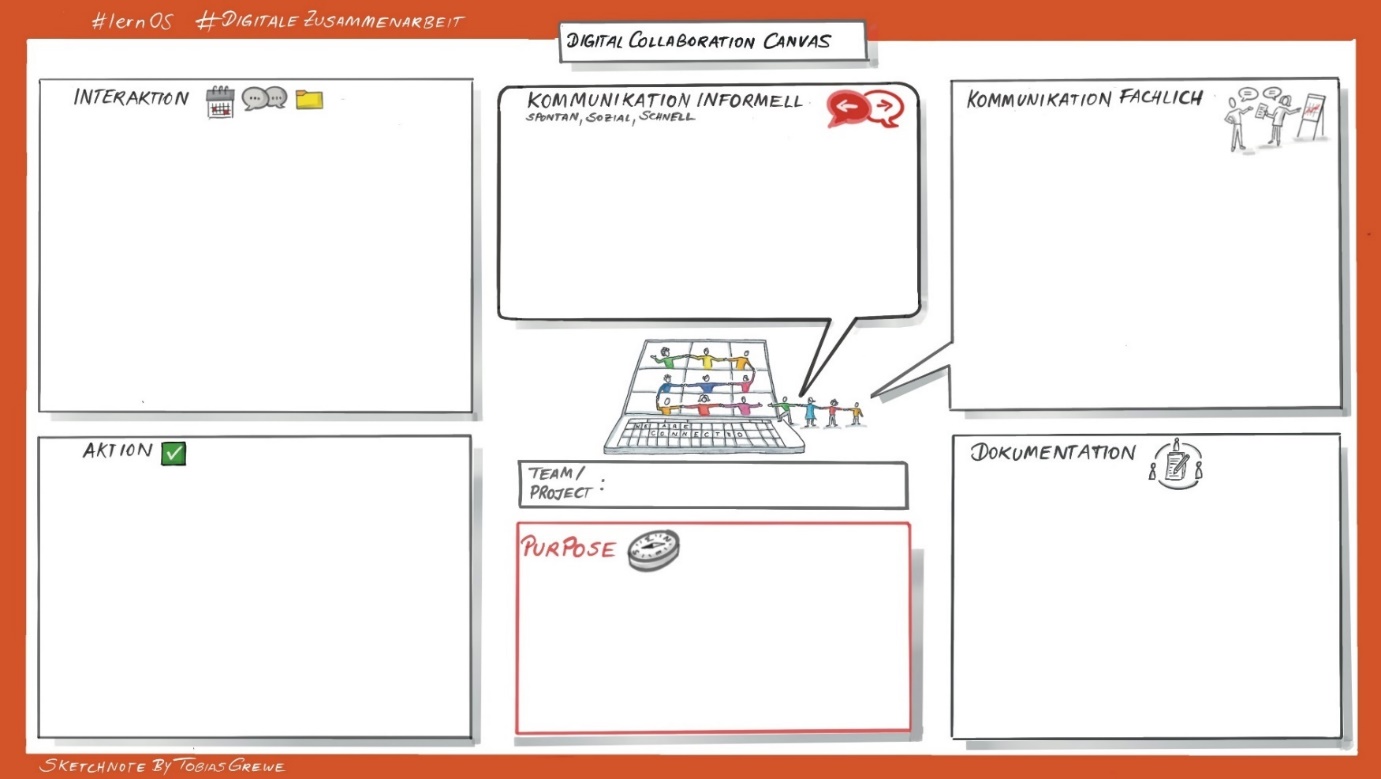 #lernOS #DIGITALE ZUSAMMENARBEIT
DIGITAL COLLABORATION CANVAS
INTERAKTION
KOMMUNIKATION INFORMELL
SPONTAN, SOZIAL, SCHNELL
KOMMUNIKATION FACHLICH
WE ARE
CONNECTED
AKTION
TEAM/
PROJECT:
PURPOSE
DOKUMENTATION
SKETCHNOTE BY TOBIAS GREWE